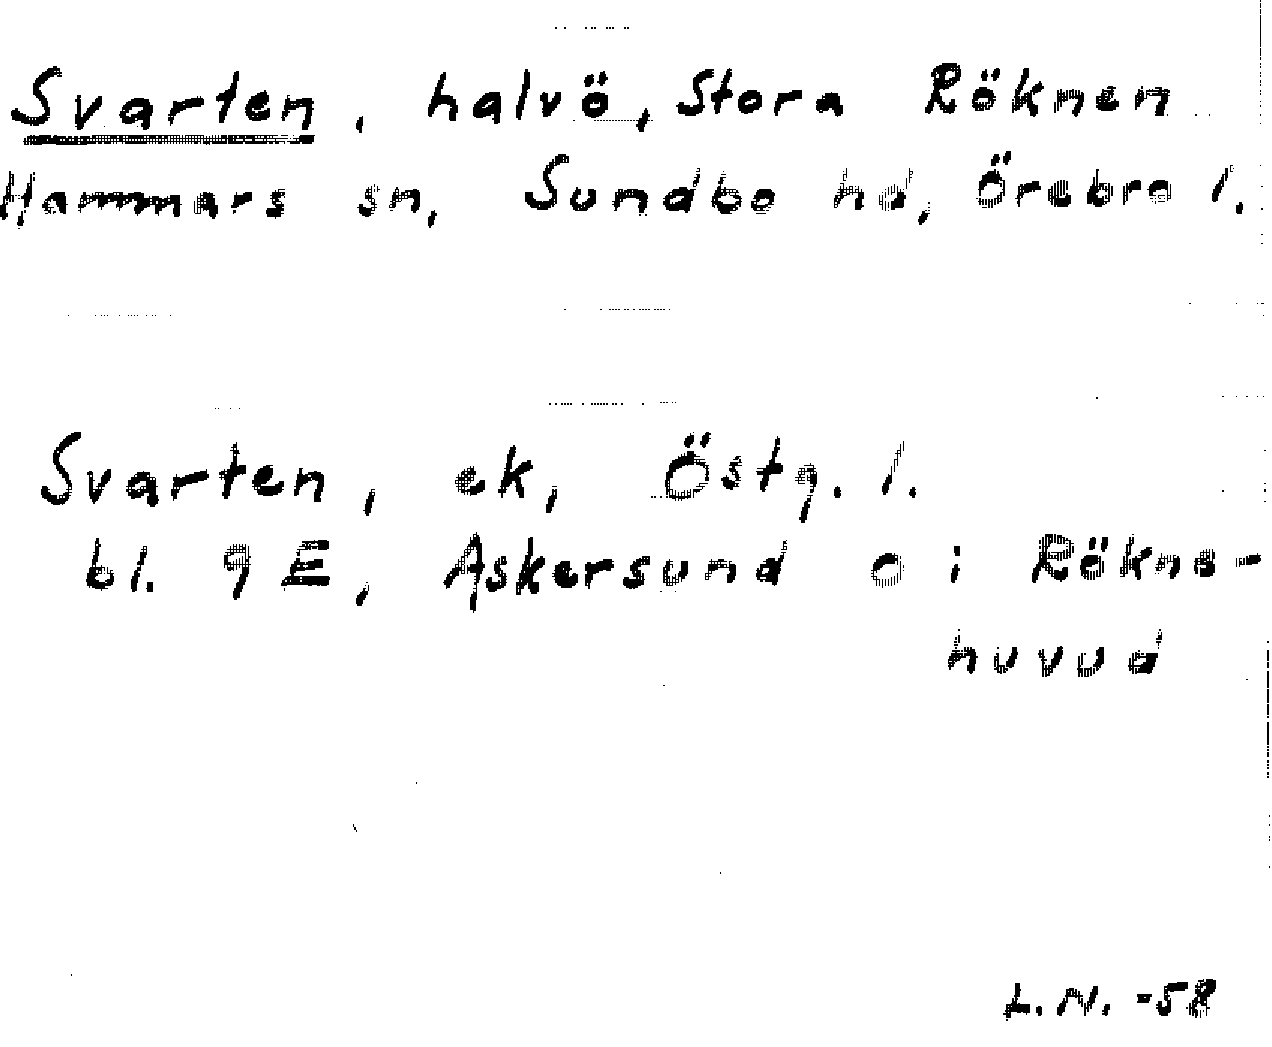 Svarten, halvö, Stora Röknen
Hammars sn, Sundbo hd, Örebro l.
Svarten, ek, Östg. l.
bl. 9 E, Askersund o i Rökna-
huvud
L.N. -58